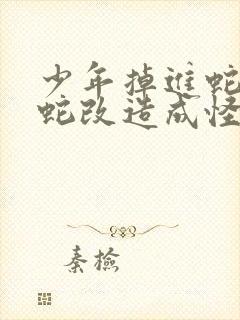 少年掉进蛇
蛇改造成怪
秦检